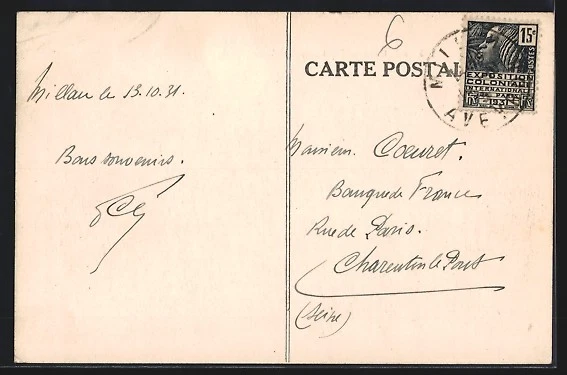 Millau le 13.10.31.
Bons souvenirs.
6
CARTE POSTALE
15c
POSTES
EXPOSITION
COLONIALE
INTERNATIONALE
PARIS
1931
MIL
AVEY
Monsieur Coeuret.
Banque de France
Rue de Paris.
Charenton le Pont
(Seine)